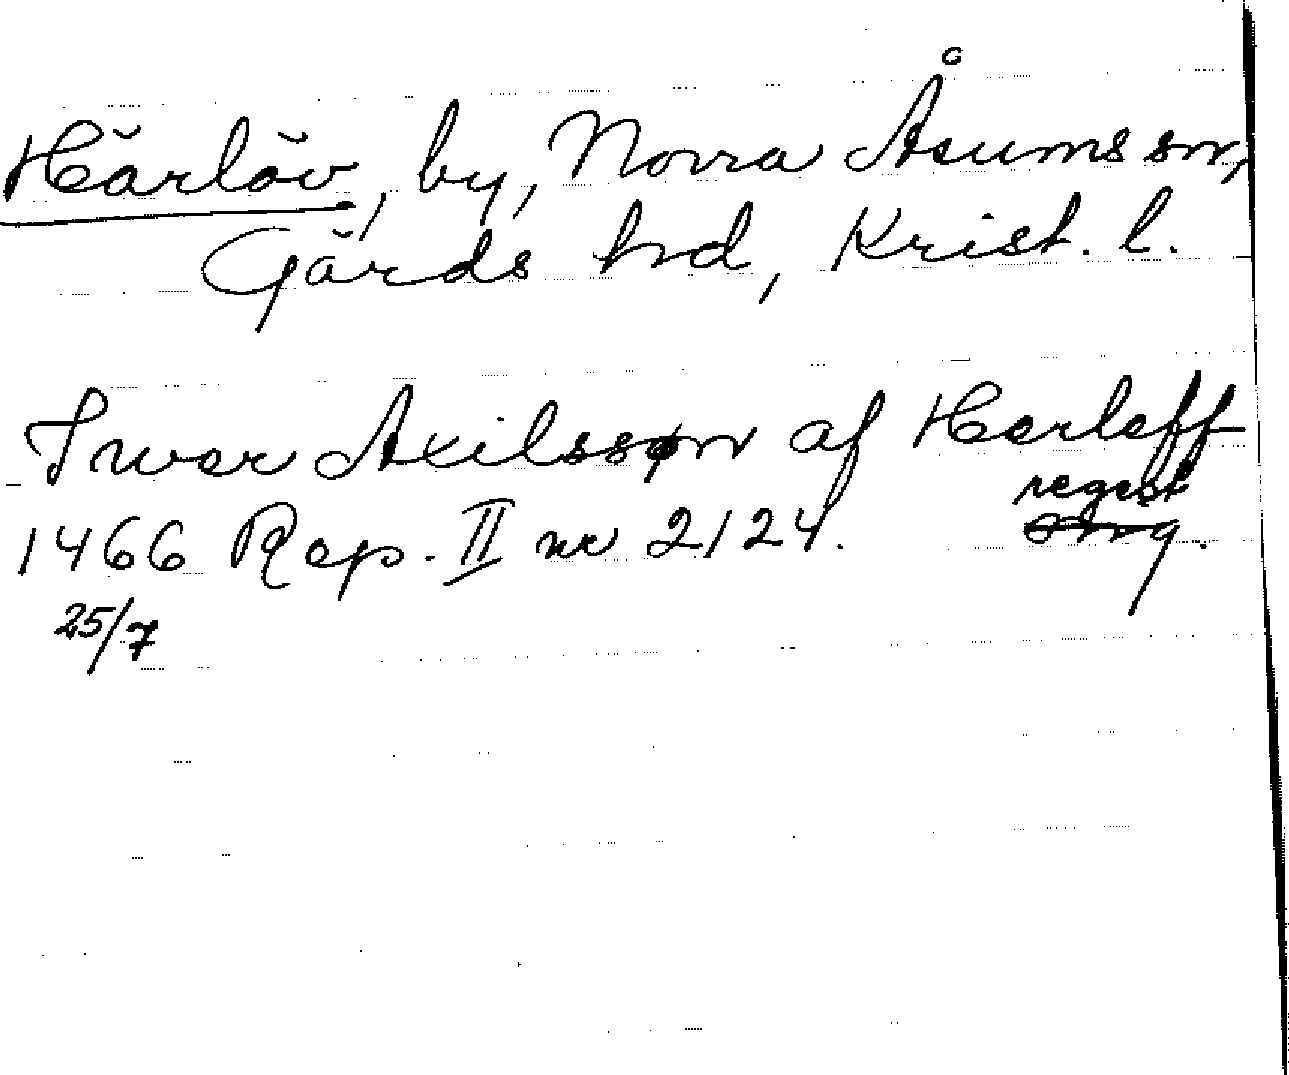 Härlöv, by, Norra Åsums sn,
Gärds hd, Krist. l.
Iwer Axilssøn af Herleff
regest
1466 Rep. II nr 2124.
25/7